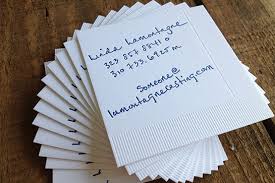 Linda Lamontagne
323 857 8841 o
310 735.6925 m
someone@
lamontagnecasting.com